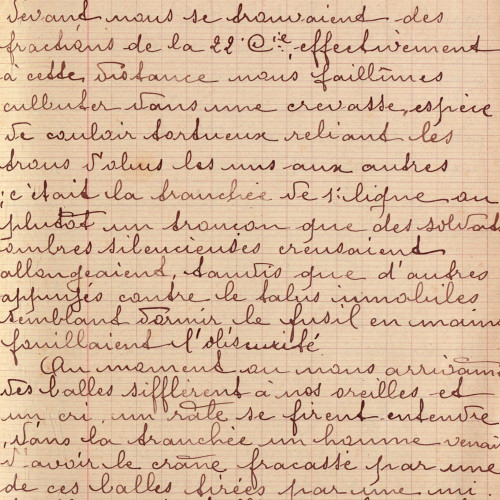 devant nous se trouvaient des
fractions de la 22e Cie, effectivement
à cette distance nous faillîmes
culbuter dans une crevasse, espèce
de couloir tortueux reliant les
trous d'obus les uns aux autres
; c'était la tranchée de 1e ligne ou
plutôt un tronçon que des soldats
ombres silencieuses creusaient
allongeaient, tandis que d'autres
appuyés contre le talus immobiles
semblant dormir le fusil en main
fouillaient l'obscurité
Au moment ou nous arrivâmes
des balles sifflèrent à nos oreilles et
un cri, un râle se firent entendre
, dans la tranchée un homme venait
d'avoir le crâne fracassé par une
de ces balles tirées par une mi